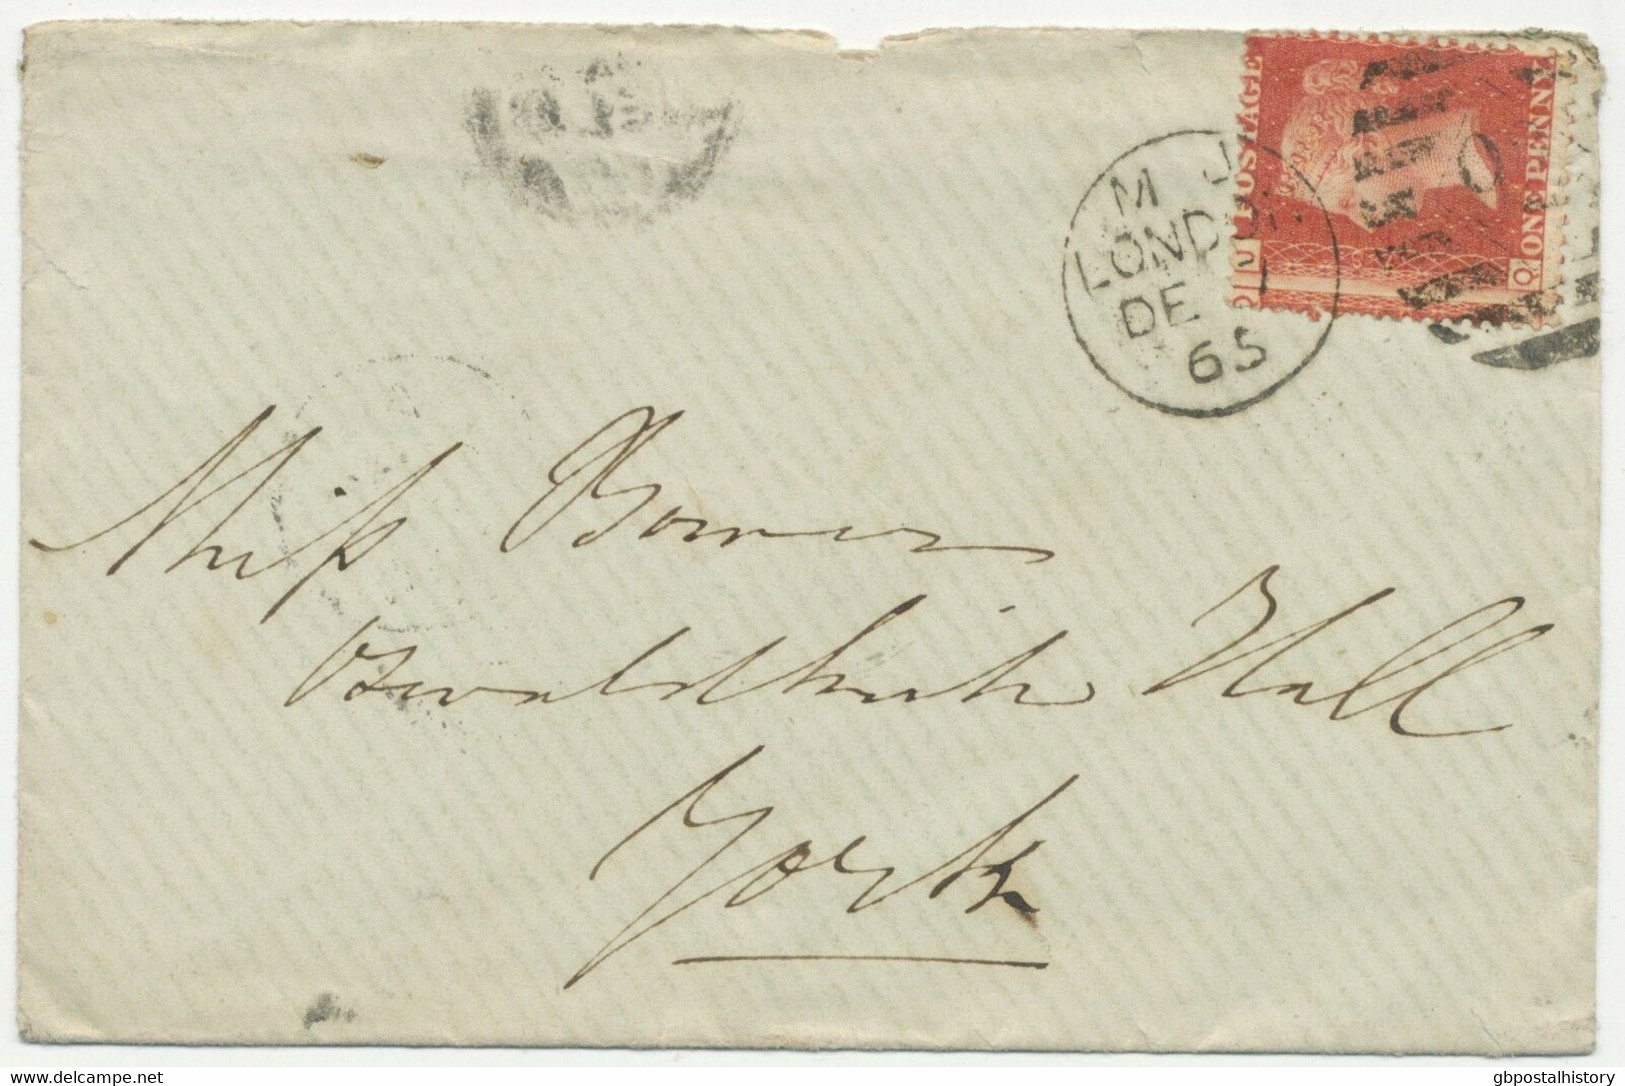 POSTAGE
ONE PENNY
M J
LONDON
DE
65
Miss Bower
Oswaldkirk Hall
York
www.delcampe.net
gbpostalhistory